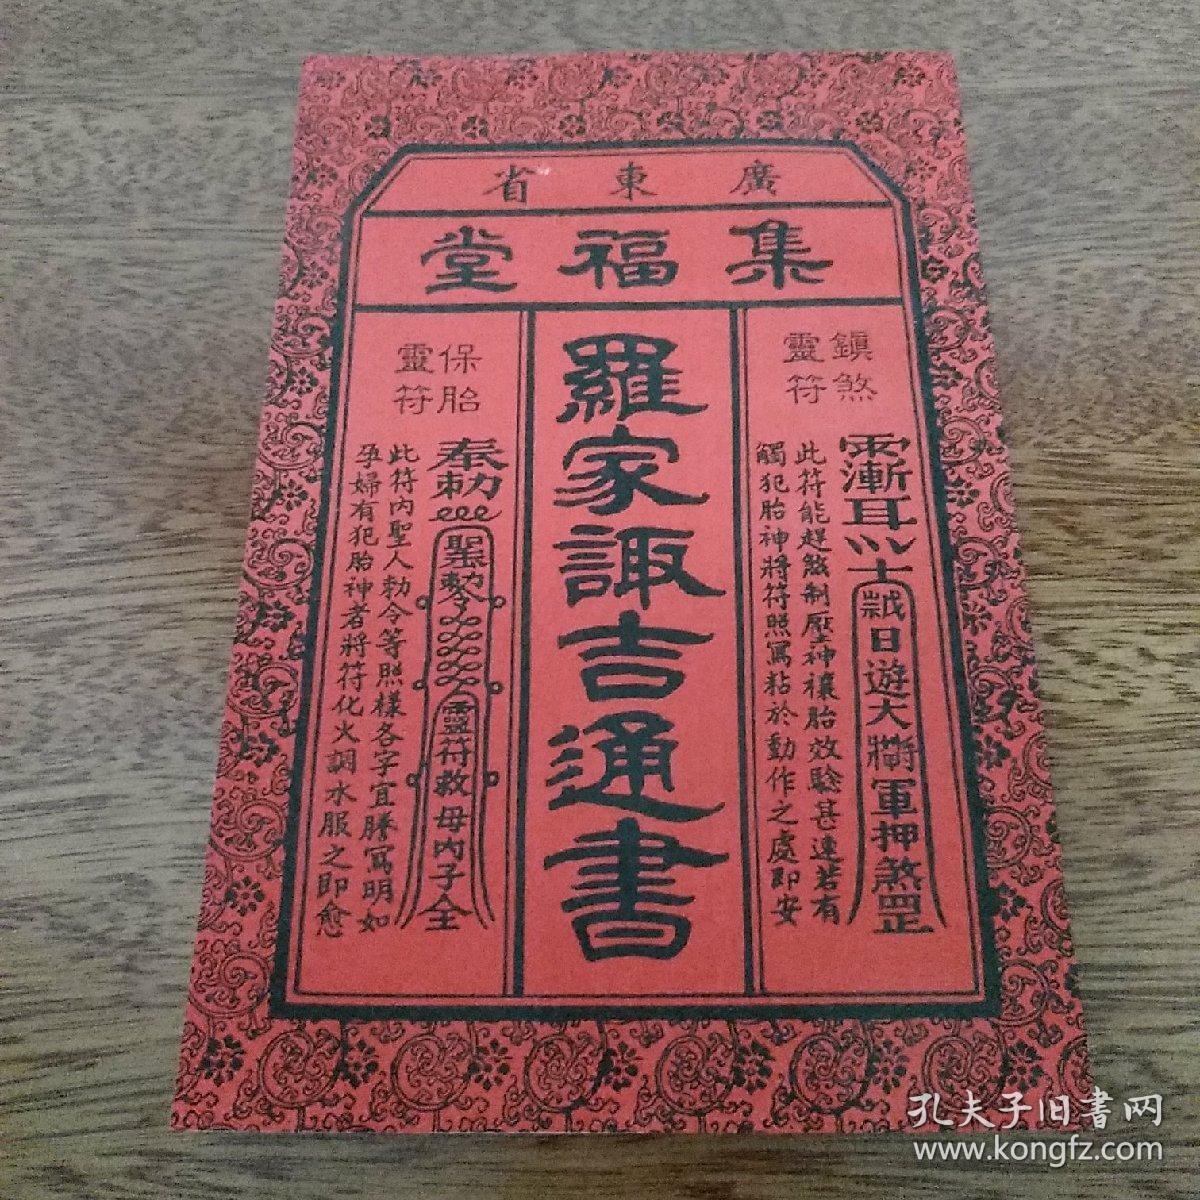 廣東省
集福堂
鎮煞
靈符
日遊大將軍押煞罡
此符能趕煞制壓神禳胎效驗甚速若有
觸犯胎神將符照寫粘於動作之處即安
羅家諏吉通書
保胎
靈符
奉勅
聖勅
靈符救母內子全
此符內聖人勅令等照樣各字宜謄寫明如
孕婦有犯胎神者將符化火調水服之即愈
孔夫子旧書网
www.kongfz.com